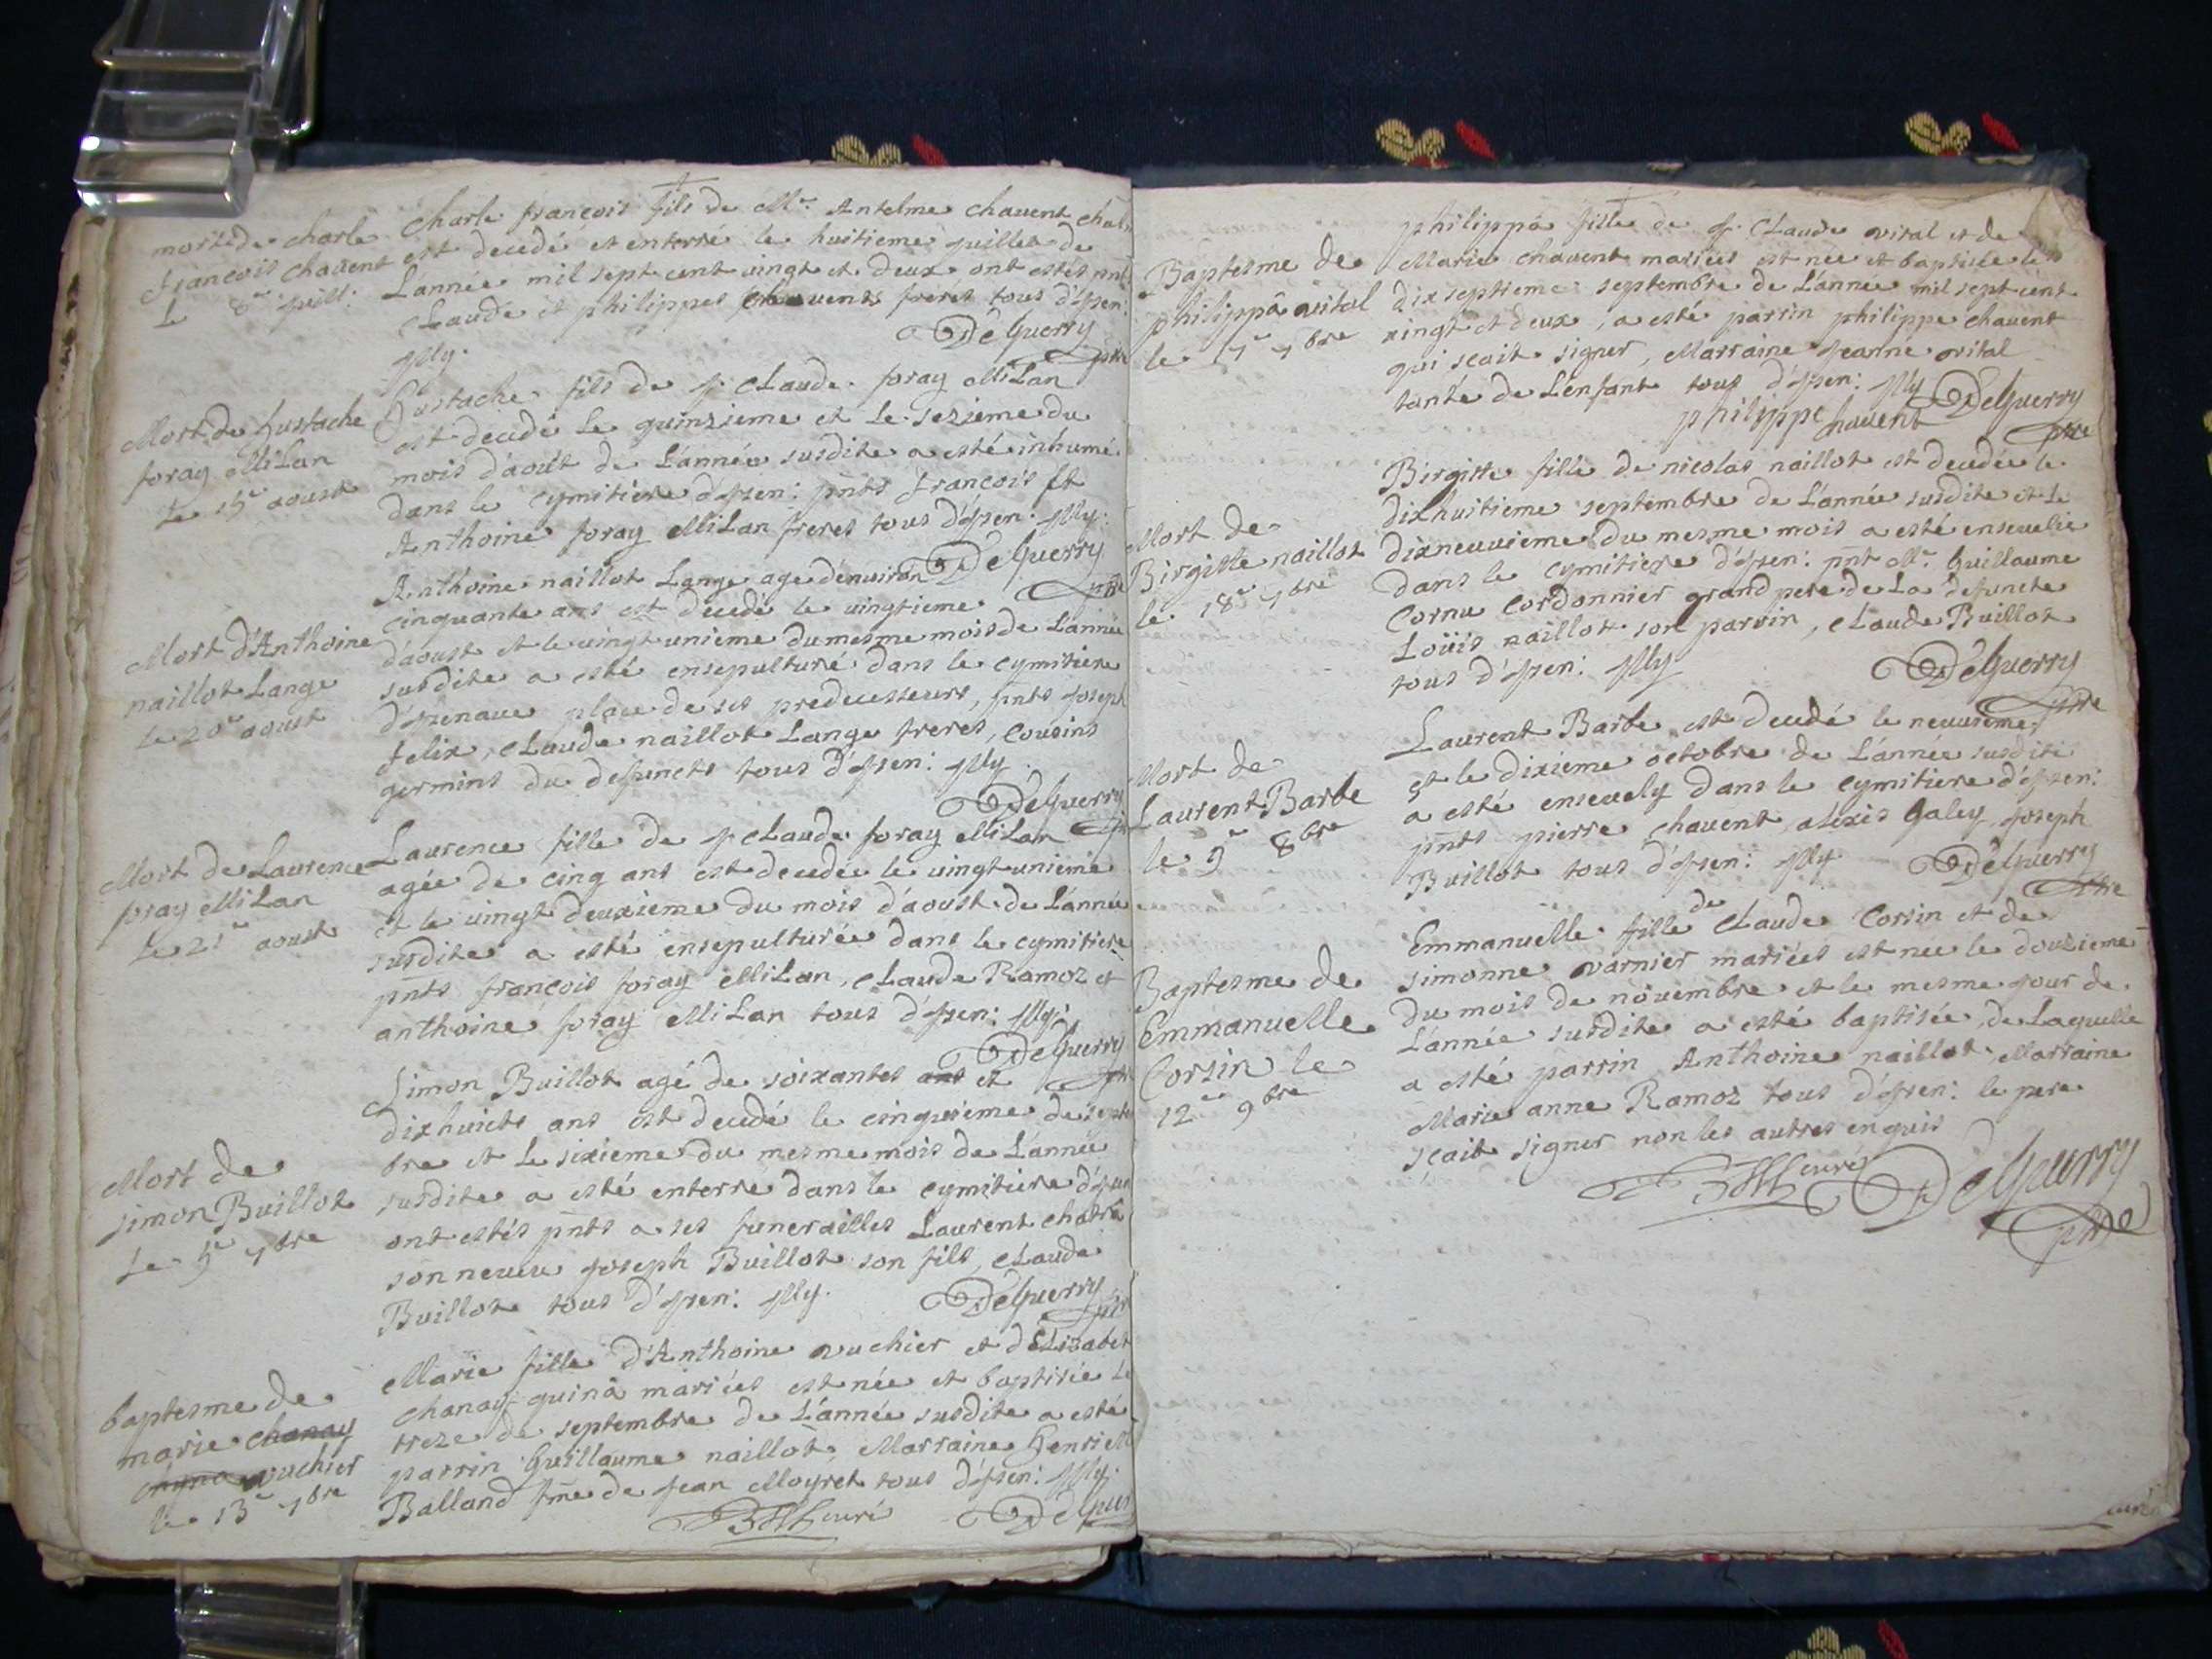 morte de charle
francois chavent
le 8e juill:
Charle francois fils de Mr. Antelme chavent chal
est decedé et enterré le huitieme juillet de
L'année mil sept cent vingt et deux ont estés pnts
Claude et philippes chavents freres tous d'jzen:
jlly.
DeGuerry
ptre
Mort de Eustache
foray MiLan
Le 15e aoust
Eustache fils de j. CLaude foray MiLan
est decedé le quinzieme et le sezieme du
mois d'aoùt de L'année susdite a esté inhumé
dans le cymitiere d'jzen: pnts francois et
Anthoine foray MiLan freres tous d'jzen: jlly:
DeGuerry
ptre
Mort d'Anthoine
naillot Lange
Le 20e aoust
Anthoine naillot Lange age d'environ
cinquante ans est decedé le vingtieme
d'aoust et le vingt unieme du mesme mois de L'année
susdite a esté ensepulturé dans le cymitiere
d'jzenave place de ses predecesseurs, pnts joseph
felix, CLaude naillot Lange freres, cousins
germins du defuncts tous d'jzen: jlly.
DeGuerry
Mort de Laurence
foray MiLan
Le 21e aoust
Laurence fille de j. cLaude foray MiLan
agée de cinq ans est decedée le vingt unieme
et le vingt deuxieme du mois d'aoust de L'année
susdite a esté ensepulturée dans le cymitiere
pnts francois foray MiLan, cLaude Ramoz et
anthoine foray MiLan tous d'jzen: jlly:
DeGuerry
Mort de
simon Buillot
Le 5e 7bre
Simon Buillot agé de soixantes ans et
dixhuicts ans est decedé le cinquieme de sept
bre et Le sixieme du mesme mois de L'année
susdite a esté enterre dans le cymitiere d'jzen
ont estés pnts a ses funerailles Laurent chatra
son neveu joseph Buillot son fils, cLaude
Buillot tous d'jzen: jlly.
DeGuerry
ptre
baptesme de
marie chanay
vuchier
le 13e 7bre
Marie fille d'Anthoine vuchier et d'Elizabet
chanay quinà mariées est née et baptisée le
treze de septembre de L'année susdite a esté
parrin Guillaume naillot, Marraine Henriett
Balland fme de jean Moyret tous d'jzen: jlly.
curé
DeGuer
Baptesme de
philippà vital
le 17e 7bre
philippà fille de j. CLaude vital et de
Marie chavent mariées est née et baptisée le
dixseptieme septembre de L'année mil sept cent
vingt et deux, a esté parrin philippe chavent
qui sçait signer, Marraine jeanne vital
tante de L'enfant tous d'jzen: jlly
philippe chavent
DeGuerry
ptre
Mort de
Birgitte naillot
le 18e 7bre
Birgitte fille de nicolas naillot est decedée le
dixhuitieme septembre de L'année susdite et le
dixneuvieme du mesme mois a esté ensevelie
dans le cymitiere d'jzen: pnt Mr. Guillaume
Cornu Cordonnier grand pere de La defuncte
Loüis naillot son parrin, cLaude Buillot
tous d'jzen: jlly
DeGuerry
ptre
Mort de
Laurent Barbe
le 9e 8bre
Laurent Barbe est decedé le neuvieme
et le dixieme octobre de L'année susdite
a esté ensevely dans le cymitiere d'jzen:
pnts pierre chavent, alexis Galey, joseph
Buillot tous d'jzen: jlly
DeGuerry
ptre
Baptesme de
Emmanuelle
Corsin le
12e 9bre
Emmanuelle fille de CLaude Corsin et de
simonne varnier mariées est née le douzieme
du mois de novembre et le mesme jour de
L'année susdite a esté baptisée, de Laquelle
a esté parrin Anthoine naillot, Marraine
Marie anne Ramoz tous d'jzen: le pere
sçait signer non les autres enquis
curé
DeGuerry
ptre